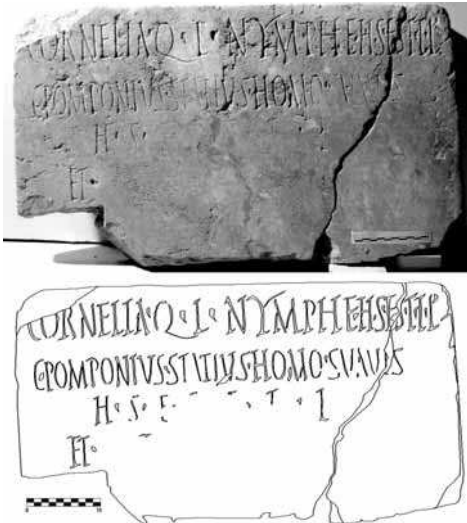 CORNELIA·Q·L·NYMPHE·H·S·E·S·T·T·L
C·POMPONIVS·STATIVS·HOMO·SVAVIS
H·S·
ET·
CORNELIA·Q·L·NYMPHE·H·S·E·S·T·T·L
C·POMPONIVS·STATIVS·HOMO·SVAVIS
H·S·E T· L
ET·